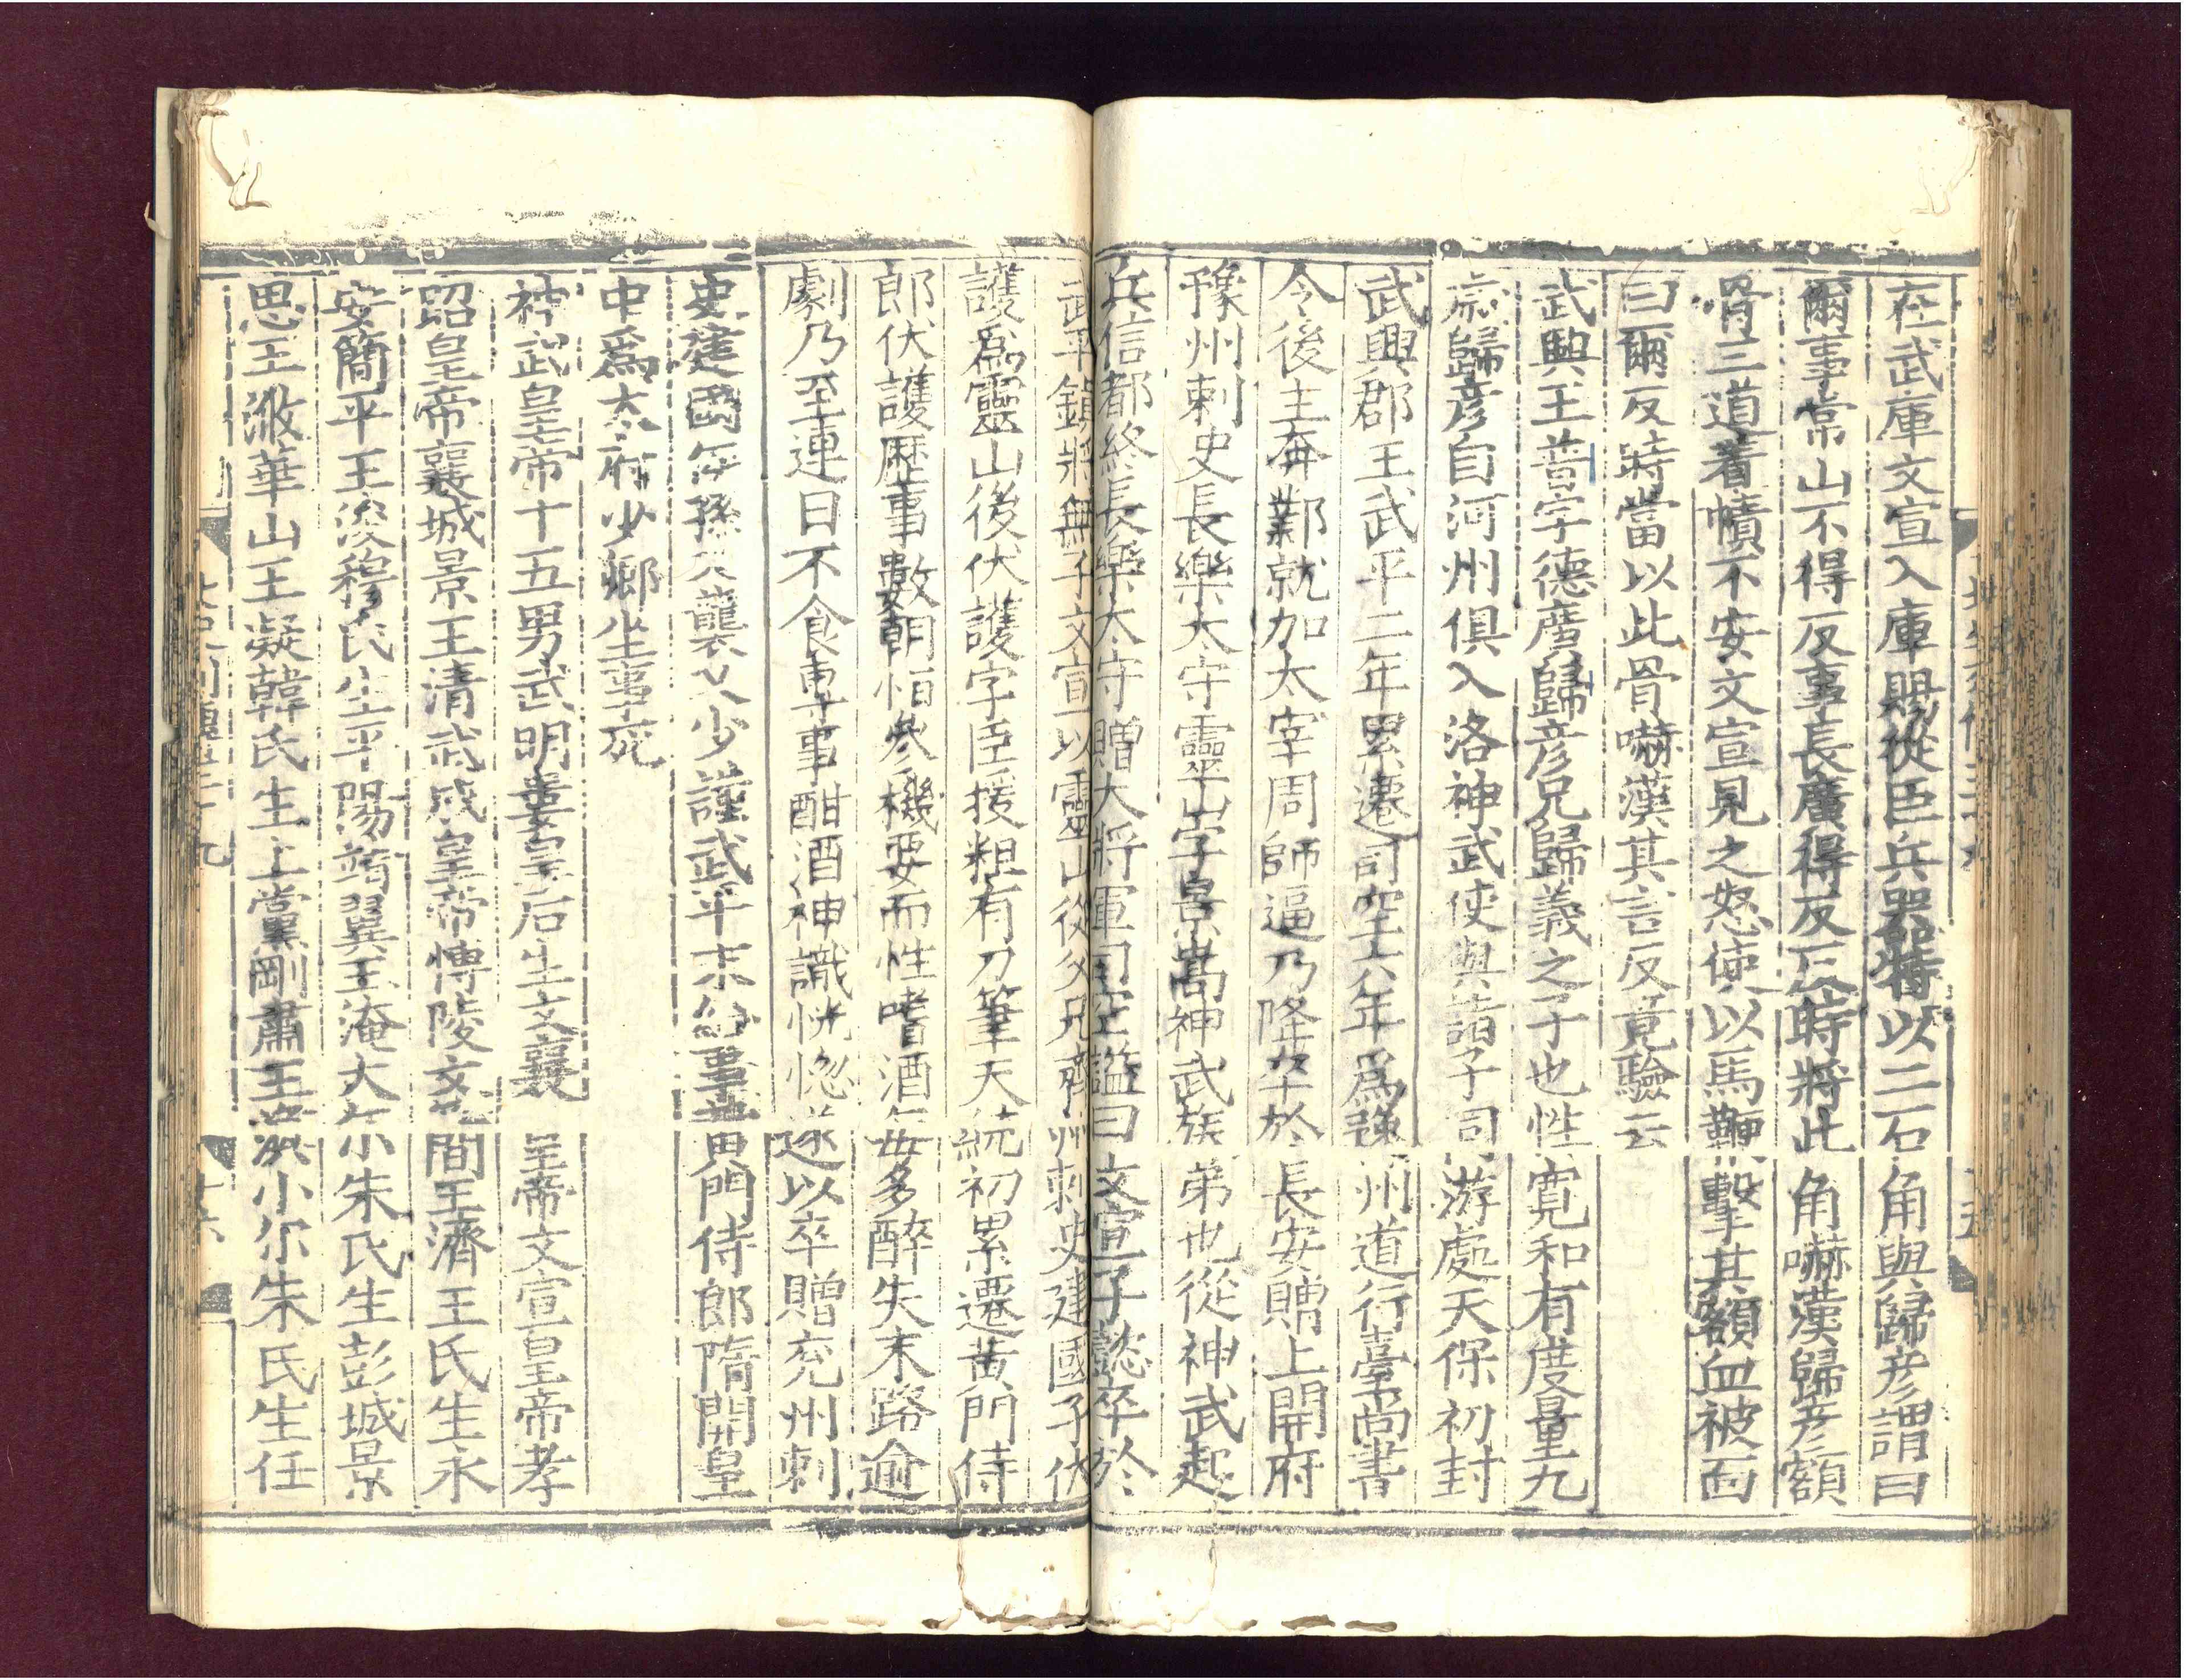 在武庫文宣入庫賜從臣兵器特以二石角與歸彦謂曰
爾事常山不得反事長廣得反反時將此角嚇漢歸彦額
骨三道着幘不安文宣見之怒使以馬鞭擊其額血被面
曰爾反時當以此骨嚇漢其言反竟驗云
武興王普字德廣歸彦兄歸義之子也性寛和有度量九
歳歸彦自河州俱入洛神武使與諸子同游處天保初封
武興郡王武平二年累遷司空六年爲豫州道行臺尚書
令後主奔鄴就加太宰周師逼乃降卒於長安贈上開府
豫州刺史長樂太守靈山字景嵩神武族弟也從神武起
兵信都終長樂太守贈大將軍司空謚曰文宣子懿卒於
武平鎮將無子文宣以靈山從父兄齊州刺史建國子伏
護爲靈山後伏護字臣援粗有刀筆天統初累遷黄門侍
郎伏護歴事數朝恒參機要而性嗜酒每多醉失末路逾
劇乃至連日不食專事酣酒神識恍惚遂以卒贈兖州刺
史建國 孫乂襲乂少謹武平末給事黄門侍郎隋開皇
中爲太府少卿坐事死
神武皇帝十五男武明婁皇后生文襄皇帝文宣皇帝孝
昭皇帝襄城景王淯武成皇帝博陵文 間王濟王氏生永
安簡平王浚穆氏生平陽靖翼王淹大 小朱氏生彭城景
思王浟華山王凝韓氏生上黨剛肅王渙小尔朱氏生任
十六